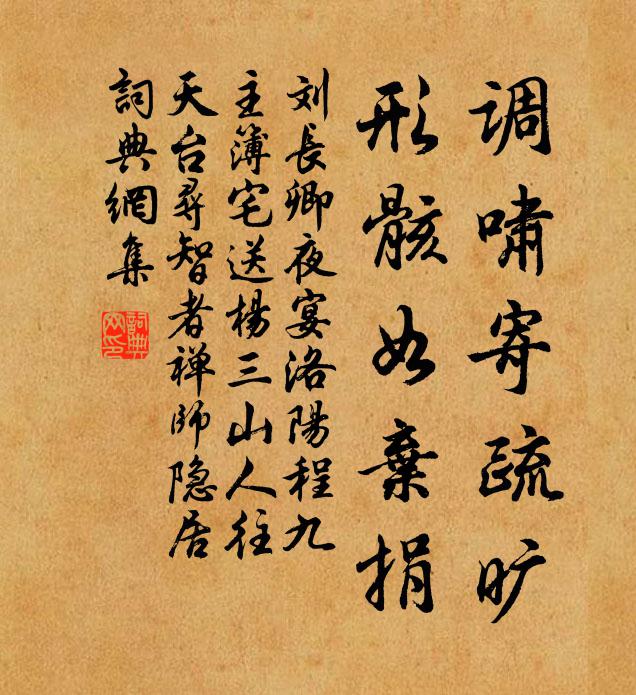 调啸寄疏旷
形骸如棄捐
刘長卿夜宴洛陽程九
主簿宅送楊三山人往
天台尋智者禅師隐居
詞典網集
詞典网印